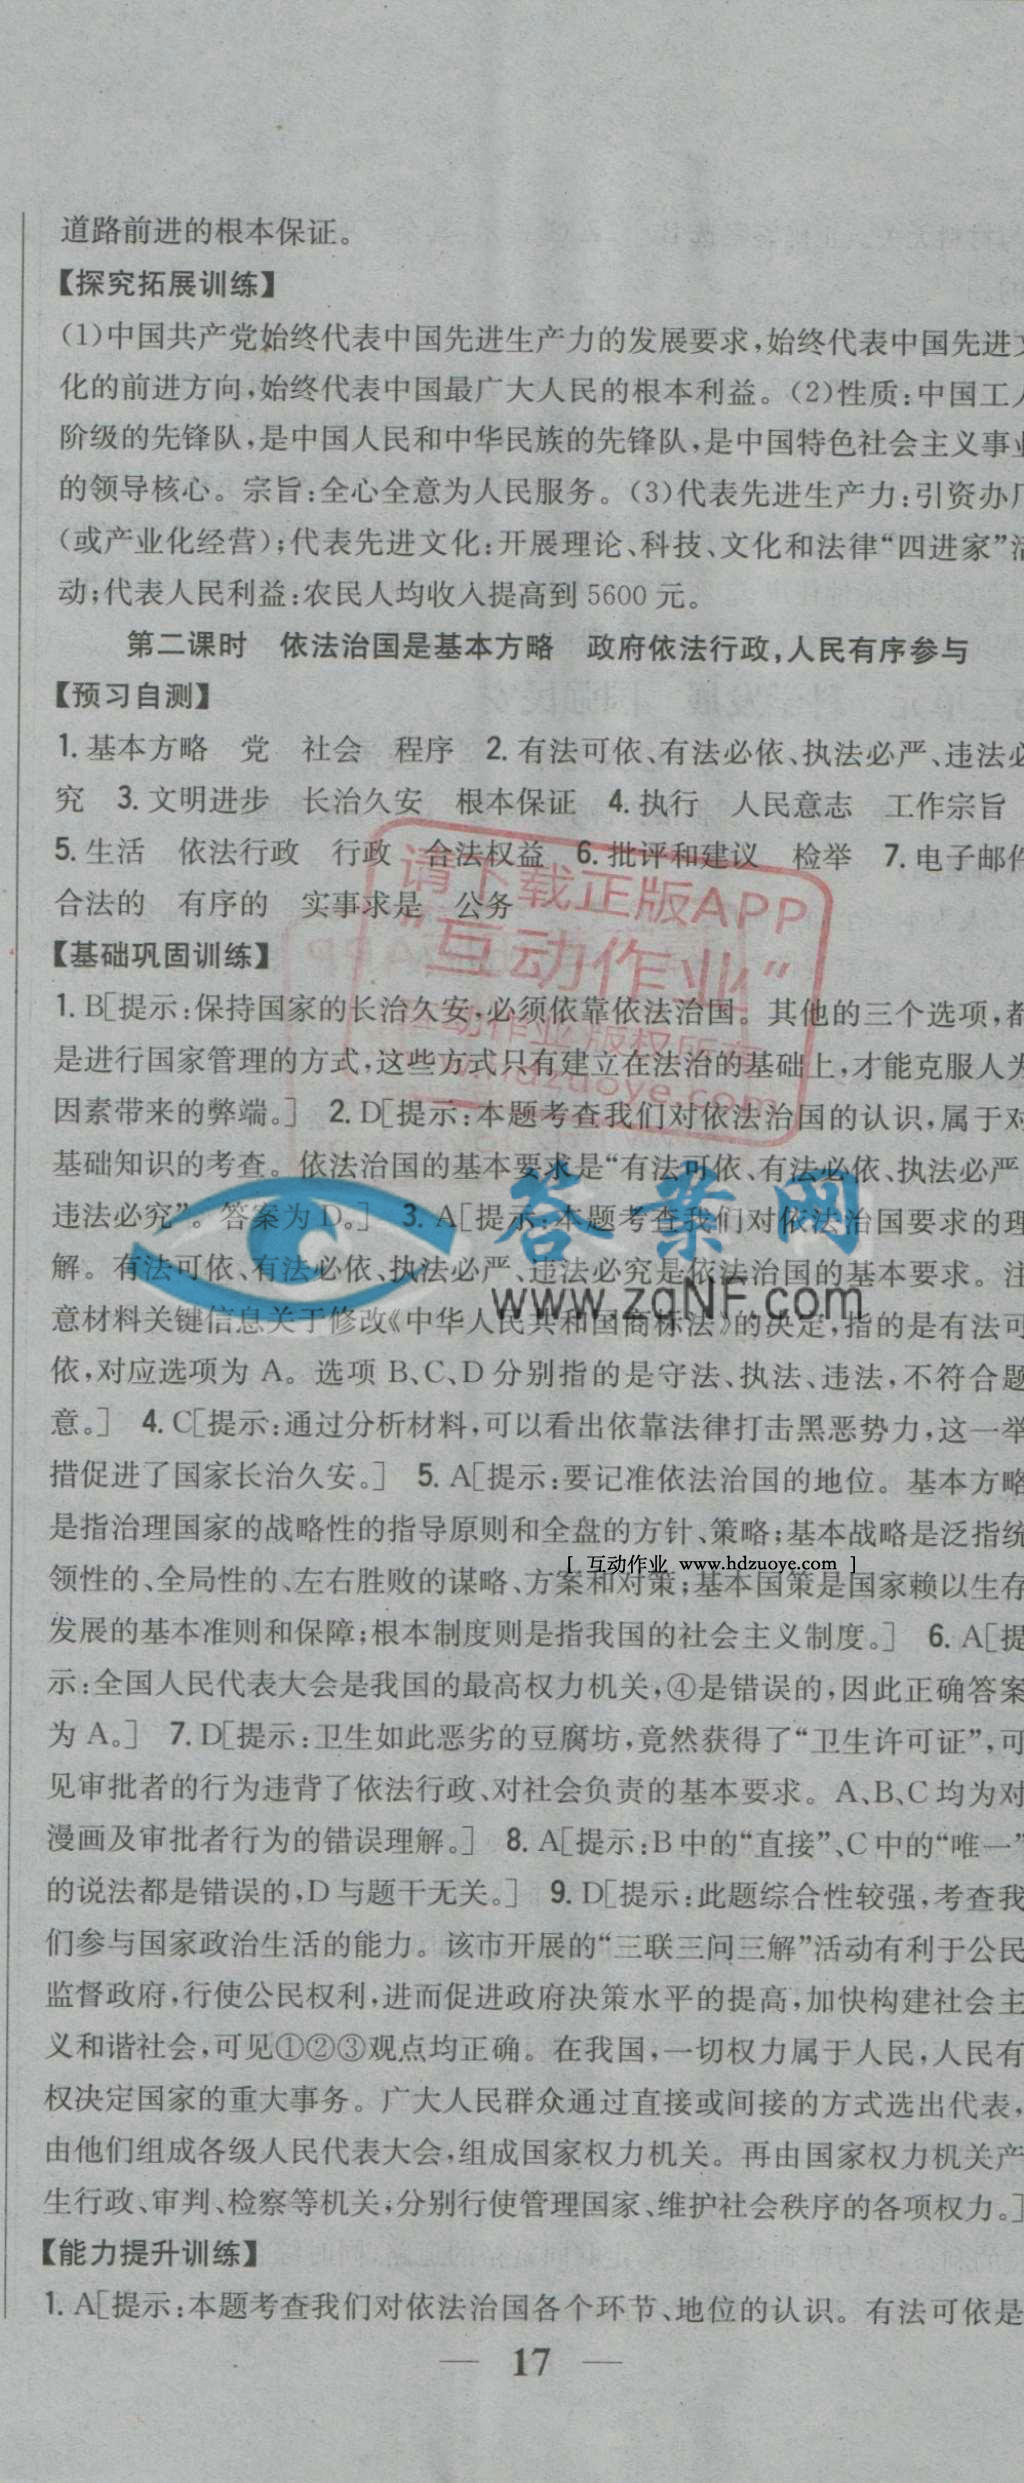 道路前进的根本保证。
【探究拓展训练】
(1)中国共产党始终代表中国先进生产力的发展要求,始终代表中国先进文
化的前进方向,始终代表中国最广大人民的根本利益。(2)性质:中国工人
阶级的先锋队,是中国人民和中华民族的先锋队,是中国特色社会主义事业
的领导核心。宗旨:全心全意为人民服务。(3)代表先进生产力:引资办厂
(或产业化经营);代表先进文化:开展理论、科技、文化和法律“四进家”活
动;代表人民利益:农民人均收入提高到 5600 元。
第二课时 依法治国是基本方略 政府依法行政,人民有序参与
【预习自测】
1. 基本方略 党 社会 程序 2. 有法可依、有法必依、执法必严、违法必
究 3. 文明进步 长治久安 根本保证 4. 执行 人民意志 工作宗旨
5. 生活 依法行政 行政 合法权益 6. 批评和建议 检举 7. 电子邮件
合法的 有序的 实事求是 公务
【基础巩固训练】
1. B[提示:保持国家的长治久安,必须依靠依法治国。其他的三个选项,都
是进行国家管理的方式,这些方式只有建立在法治的基础上,才能克服人为
因素带来的弊端。] 2. D[提示:本题考查我们对依法治国的认识,属于对
基础知识的考查。依法治国的基本要求是“有法可依、有法必依、执法必严、
违法必究”。答案为 D。] 3. A[提示:本题考查我们对依法治国要求的理
解。有法可依、有法必依、执法必严、违法必究是依法治国的基本要求。注
意材料关键信息关于修改《中华人民共和国商标法》的决定,指的是有法可
依,对应选项为 A。选项 B、C、D 分别指的是守法、执法、违法,不符合题
意。] 4. C[提示:通过分析材料,可以看出依靠法律打击黑恶势力,这一举
措促进了国家长治久安。] 5. A[提示:要记准依法治国的地位。基本方略
是指治理国家的战略性的指导原则和全盘的方针、策略;基本战略是泛指统
领性的、全局性的、左右胜败的谋略、方案和对策;基本国策是国家赖以生存
发展的基本准则和保障;根本制度则是指我国的社会主义制度。] 6. A[提
示:全国人民代表大会是我国的最高权力机关,④是错误的,因此正确答案
为 A。] 7. D[提示:卫生如此恶劣的豆腐坊,竟然获得了“卫生许可证”,可
见审批者的行为违背了依法行政、对社会负责的基本要求。A、B、C 均为对
漫画及审批者行为的错误理解。] 8. A[提示:B 中的“直接”、C 中的“唯一”
的说法都是错误的,D 与题干无关。] 9. D[提示:此题综合性较强,考查我
们参与国家政治生活的能力。该市开展的“三联三问三解”活动有利于公民
监督政府,行使公民权利,进而促进政府决策水平的提高,加快构建社会主
义和谐社会,可见①②③观点均正确。在我国,一切权力属于人民,人民有
权决定国家的重大事务。广大人民群众通过直接或间接的方式选出代表,
由他们组成各级人民代表大会,组成国家权力机关。再由国家权力机关产
生行政、审判、检察等机关,分别行使管理国家、维护社会秩序的各项权力。]
【能力提升训练】
1. A[提示:本题考查我们对依法治国各个环节、地位的认识。有法可依是
— 17 —
请下载正版APP
“互动作业”
互动作业版权所有
www.hdzuoye.com
答案网
www.zqNF.com
[ 互动作业 www.hdzuoye.com ]